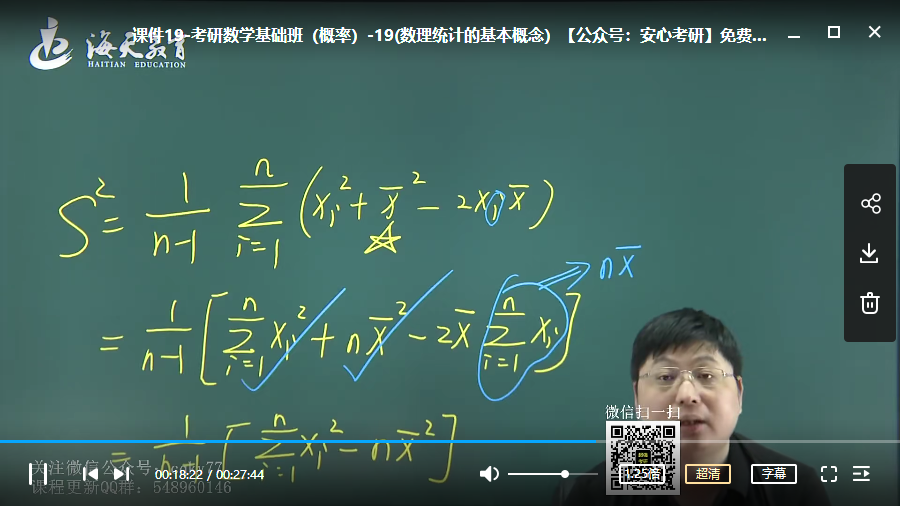 课件19-考研数学基础班（概率）-19(数理统计的基本概念）【公众号：安心考研】免费...
海天教育
HAITIAN EDUCATION
S² = 1/(n-1) Σ_{i=1}^{n} (x_i² + x̄² - 2x_i x̄)
nx̄
= 1/(n-1) [Σ_{i=1}^{n} x_i² + nx̄² - 2x̄ Σ_{i=1}^{n} x_i]
= 1/(n-1) [Σ_{i=1}^{n} x_i² - nx̄²]
微信扫一扫
关注微信公众号:
课程更新QQ群: 548960146
00:18:22 / 00:27:44
1.25倍
超清
字幕